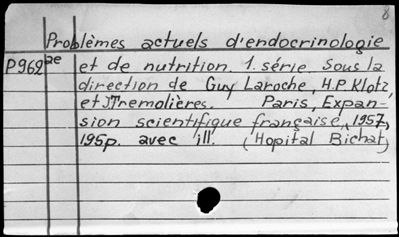 8
Problèmes actuels d'endocrinologie
P962ae et de nutrition. 1. série. Sous la
direction de Guy Laroche, H.P. Klotz,
et J.Tremolières. Paris, Expan-
sion scientifique française, 1957,
195p. avec ill. (Hopital Bichat)